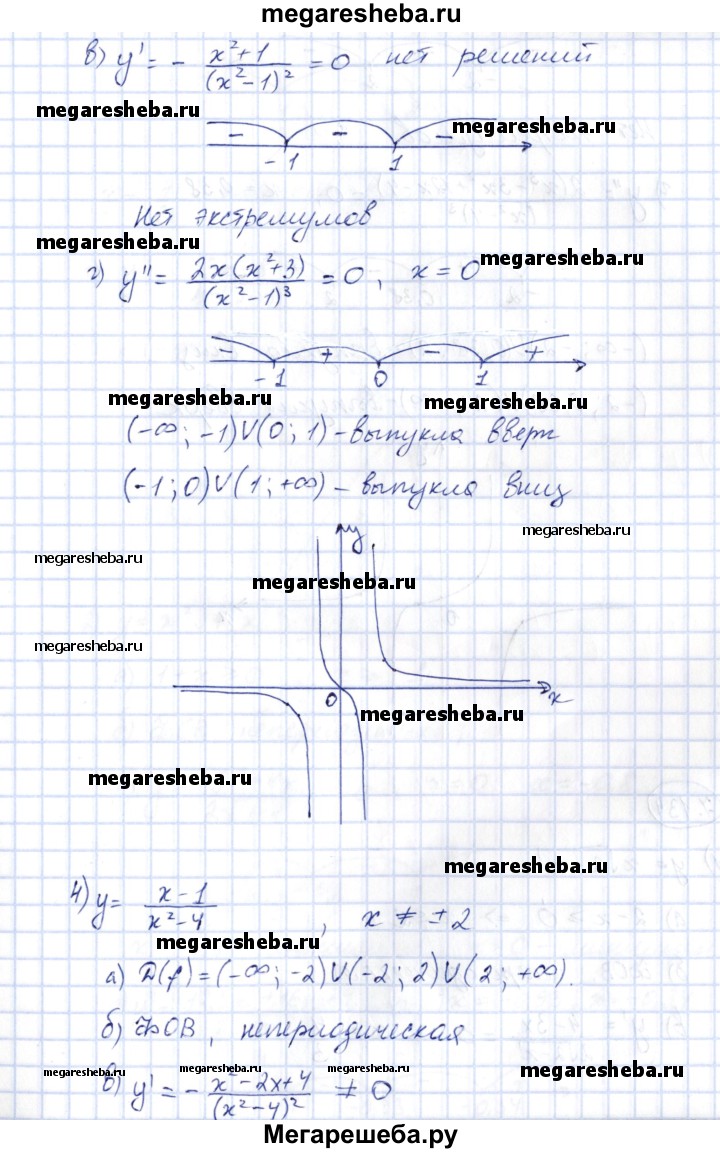 megaresheba.ru
в) y' = - \frac{x²+1}{(x²-1)²} = 0 нет решений
megaresheba.ru megaresheba.ru
- - -
-1 1
Нет экстремумов
megaresheba.ru megaresheba.ru
г) y'' = \frac{2x(x²+3)}{(x²-1)³} = 0, x = 0
- + - +
-1 0 1
megaresheba.ru megaresheba.ru
(-∞; -1)∪(0; 1) - выпукла вверх
(-1; 0)∪(1; +∞) - выпукла вниз
y
megaresheba.ru megaresheba.ru
megaresheba.ru
megaresheba.ru
0 x
megaresheba.ru
megaresheba.ru
megaresheba.ru
4) y = \frac{x-1}{x²-4}, x ≠ ±2
megaresheba.ru
а) D(f) = (-∞; -2)∪(-2; 2)∪(2; +∞).
б) ФОВ, непериодическая
megaresheba.ru megaresheba.ru megaresheba.ru megaresheba.ru
в) y' = - \frac{x²-2x+4}{(x²-4)²} ≠ 0
Мегарешеба.ру